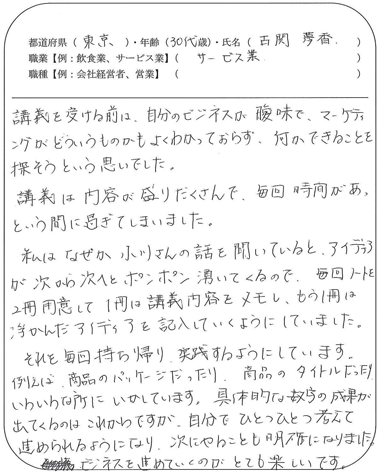 都道府県（東京、）・年齢（30代歳）・氏名（古関 夢香.）
職業【例：飲食業、サービス業】（ サービス業 ）
職種【例：会社経営者、営業】（ ）
講義を受ける前は、自分のビジネスが曖昧で、マーケティ
ングがどういうものかもよくわかっておらず、何かできることを
探そうという思いでした。
講義は内容が盛りだくさんで、毎回時間があっ
という間に過ぎてしまいました。
私はなぜか小川さんの話を聞いていると、アイディア
が次から次へとポンポン湧いてくるので、毎回ノートを
2冊用意して1冊は講義内容をメモし、もう1冊は
浮かんだアイディアを記入していくようにしていました。
それを毎回持ち帰り、実践するようにしています。
例えば、商品のパッケージだったり、商品のタイトルだったり
いろいろな所にいかしています。具体的な数字の成果が
出てくるのはこれからですが、自分でひとつひとつ考えて
進められるようになり、次にやることも明確になりました。
ビジネスを進めていくのがとても楽しいです。